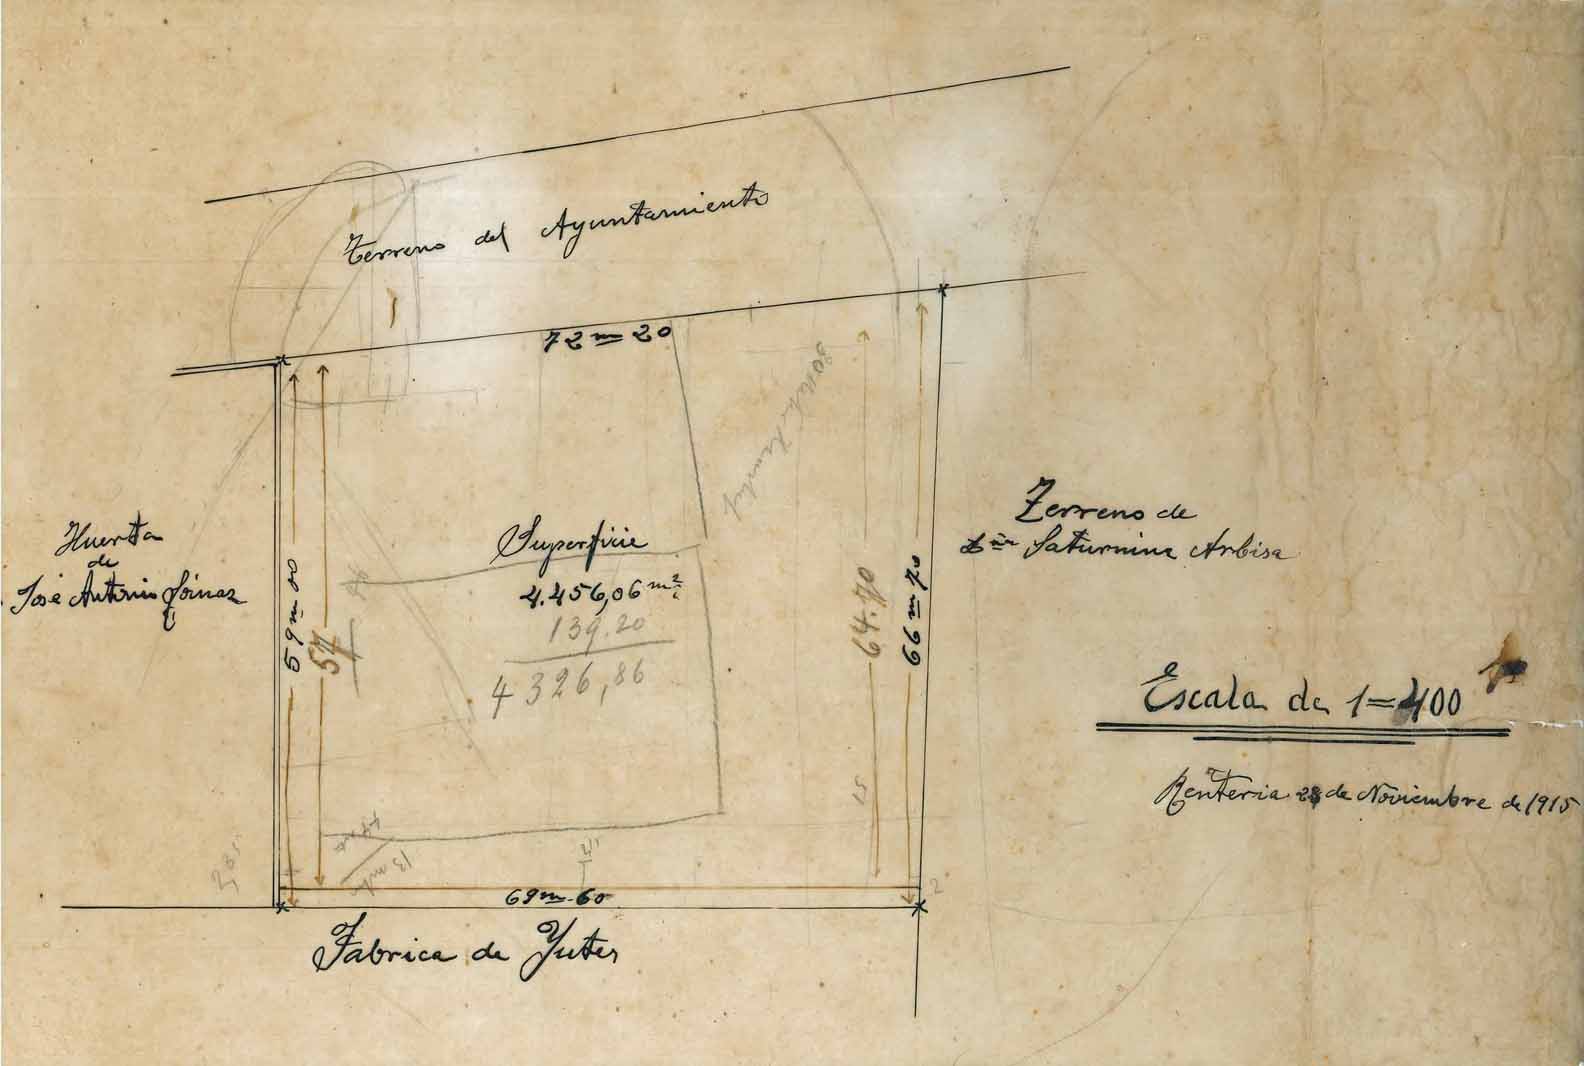 Terreno del Ayuntamiento
72 m 20
Huerta
de
José Antonio
59 m 00
57
Superficie
4.456,06 m²
139.20
4 326,86
64.70
66 m 70
15
Terreno de
Dña Saturnina Arbisa
Escala de 1=400
Renteria 28 de Noviembre de 1915
13
69 m. 60
2
Fabrica de Yutes